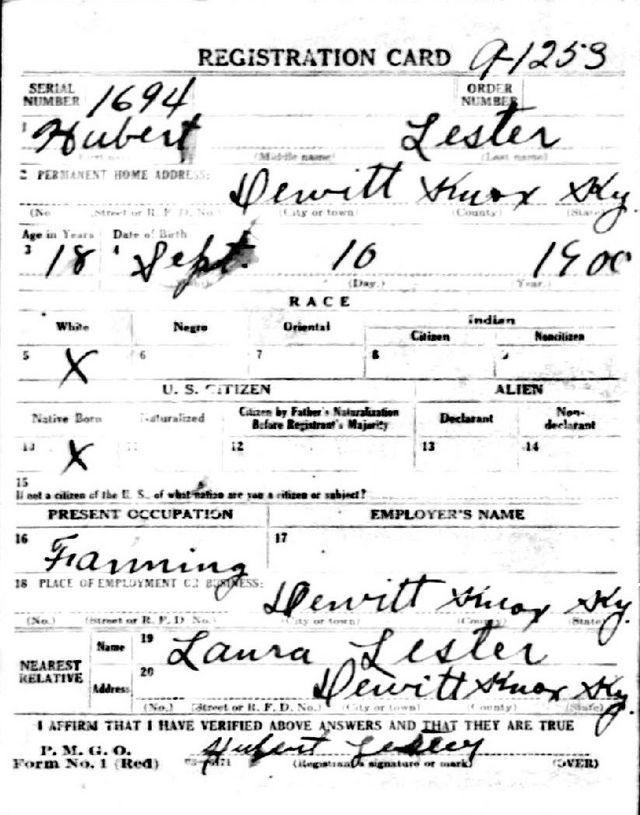 REGISTRATION CARD A-1253
SERIAL NUMBER 1694 ORDER NUMBER
1 Hubert Lester
(Middle name) (Last name)
2 PERMANENT HOME ADDRESS: Dewitt Knox Ky.
(No (Street or R. F. D. No.) (City or town) (County) (State)
Age in Years Date of Birth
3 18 4 Sept. 10 1900
(Day.) (Year.)
RACE
White Negro Oriental Indian
Citizen Noncitizen
5 X 6 7 8 9
U. S. CITIZEN ALIEN
Native Born Naturalized Citizen by Father's Naturalization Before Registrant's Majority Declarant Non-declarant
10 X 11 12 13 14
15
If not a citizen of the U. S., of what nation are you a citizen or subject?
PRESENT OCCUPATION EMPLOYER'S NAME
16 Farming 17
18 PLACE OF EMPLOYMENT OR BUSINESS:
Dewitt Knox Ky.
(No.) (Street or R. F. D. No.) (City or town) (County) (State)
NEAREST RELATIVE Name 19 Laura Lester
Address 20 Dewitt Knox Ky.
(No.) (Street or R. F. D. No.) (City or town) (County) (State)
I AFFIRM THAT I HAVE VERIFIED ABOVE ANSWERS AND THAT THEY ARE TRUE
P. M. G. O.
Form No. 1 (Red) Hubert
(Registrant's signature or mark) (OVER)